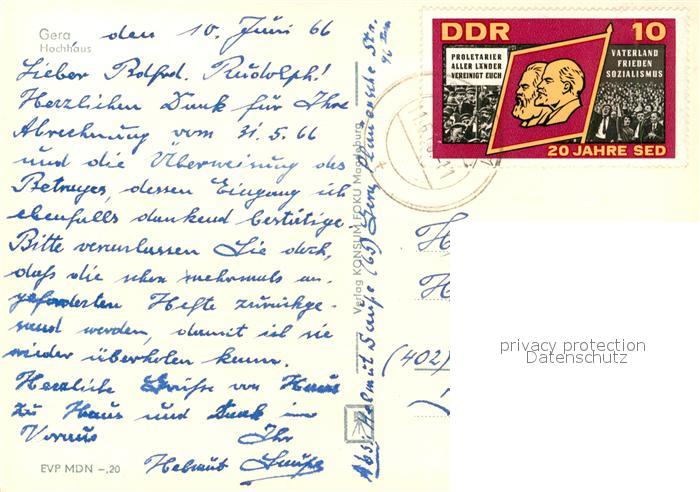 Gera
Hochhaus
, den 10. Juni 66
Lieber Rudolph!
Herzlichen Dank für Ihre
Abrechnung vom 31.5.66
und die Überweisung des
Betrages, dessen Eingang ich
ebenfalls dankend bestätige.
Bitte veranlassen Sie doch,
daß die schon mehrmals an-
geforderten Hefte zurückge-
sand werden, damit ich sie
wieder überholen kann.
Herzliche Grüße von Haus
zu Haus und Dank im
Voraus Ihr
Helmut
EVP MDN –,20
Verlag KONSUM FOKU Magdeburg
Abs. Helmut (65) Gera
DDR 10
PROLETARIER
ALLER LÄNDER
VEREINIGT EUCH
VATERLAND
FRIEDEN
SOZIALISMUS
20 JAHRE SED
H
H
(402)
privacy protection
Datenschutz